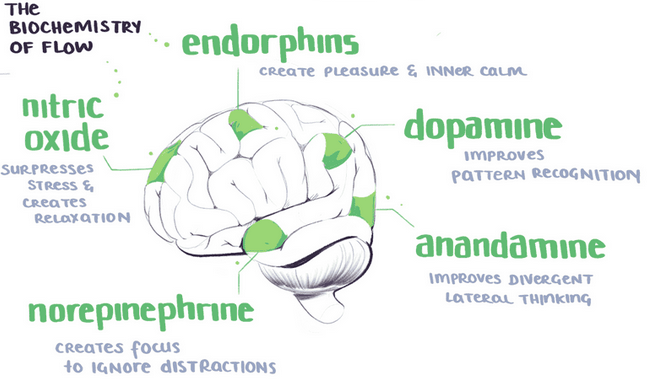 THE
BIOCHEMISTRY
OF FLOW
endorphins
CREATE PLEASURE & INNER CALM
nitric
oxide
SURPRESSES
STRESS &
CREATES
RELAXATION
dopamine
IMPROVES
PATTERN RECOGNITION
anandamine
IMPROVES DIVERGENT
LATERAL THINKING
norepinephrine
CREATES FOCUS
to IGNORE DISTRACTIONS